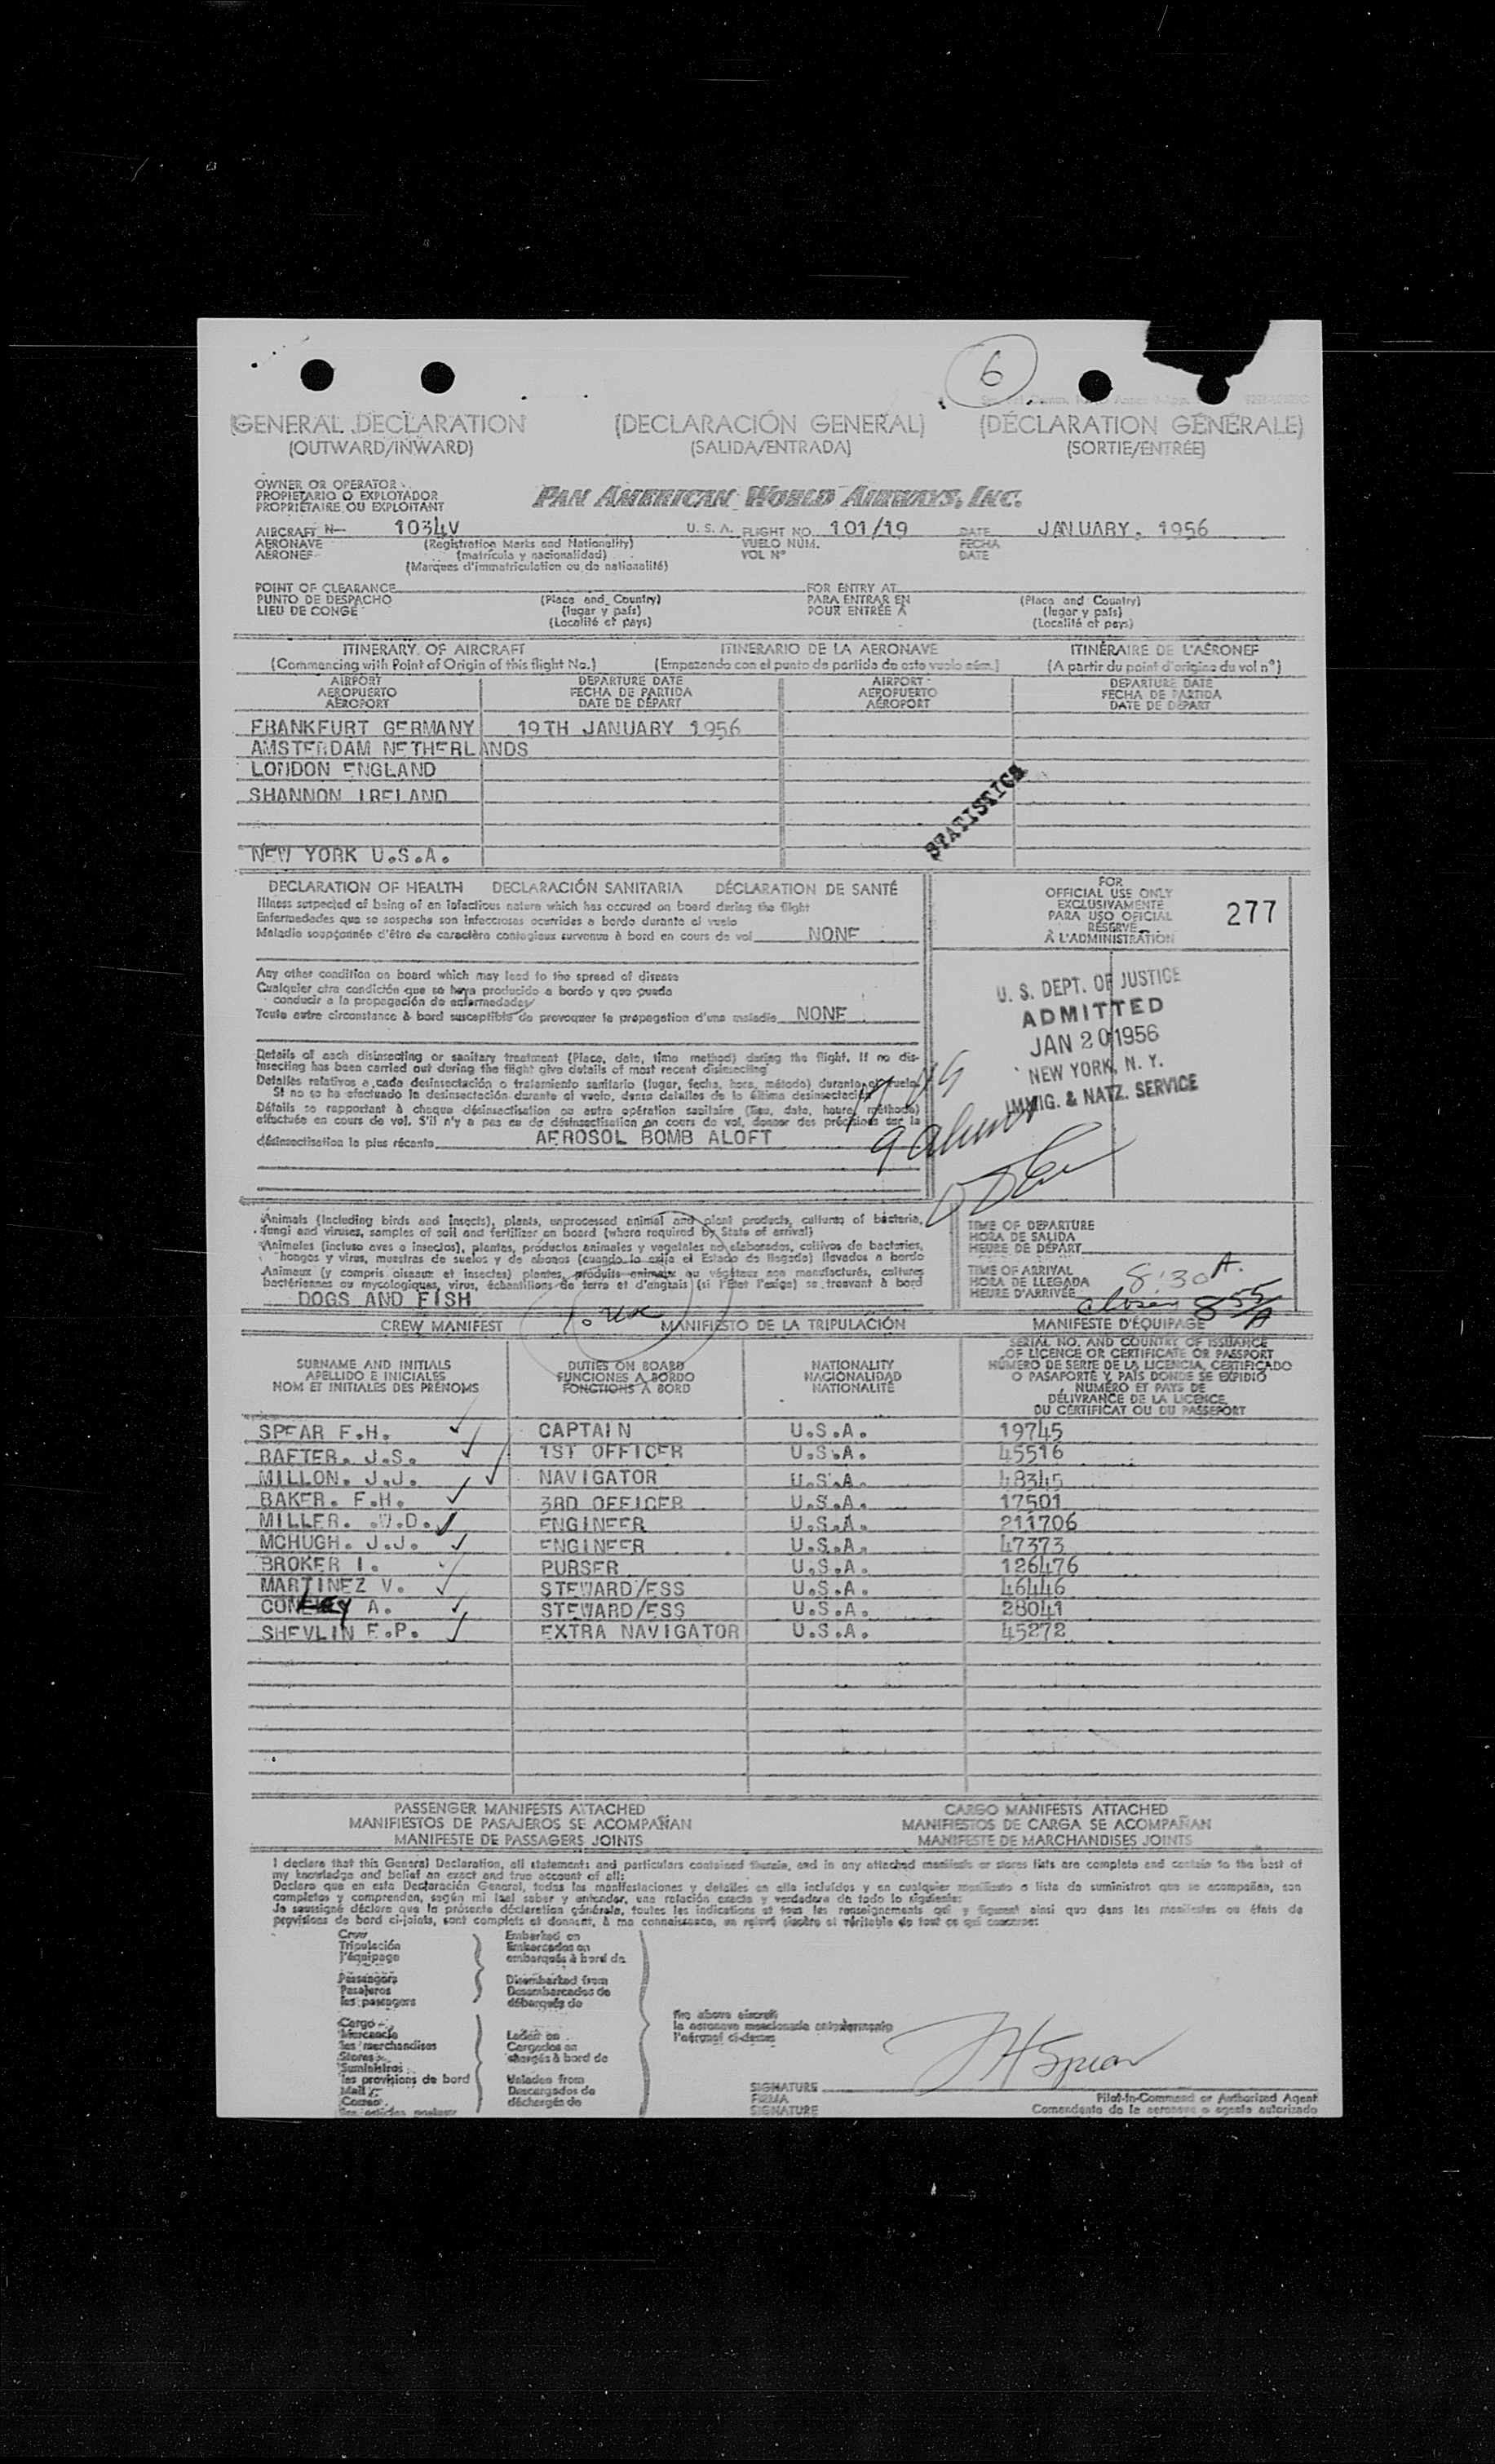 6
GENERAL DECLARATION (DECLARACIÓN GENERAL) (DÉCLARATION GÉNÉRALE)
(OUTWARD/INWARD) (SALIDA/ENTRADA) (SORTIE/ENTRÉE)
OWNER OR OPERATOR
PROPIETARIO O EXPLOTADOR
PROPRIÉTAIRE OU EXPLOITANT
PAN AMERICAN WORLD AIRWAYS, INC.
AIRCRAFT N- 1034V U. S. A. FLIGHT NO. 101/19 DATE JANUARY, 1956
AERONAVE (Registration Marks and Nationality) VUELO NÚM. FECHA
AÉRONEF (matrícula y nacionalidad) VOL Nº DATE
(Marques d'immatriculation ou de nationalité)
POINT OF CLEARANCE FOR ENTRY AT
PUNTO DE DESPACHO (Place and Country) PARA ENTRAR EN (Place and Country)
LIEU DE CONGÉ (lugar y país) POUR ENTRÉE A (lugar y país)
(Localité et pays) (Localité et pays)
ITINERARY OF AIRCRAFT ITINERARIO DE LA AERONAVE ITINÉRAIRE DE L'AÉRONEF
(Commencing with Point of Origin of this flight No.) (Empezando con el punto de partida de este vuelo núm.) (A partir du point d'origine du vol nº)
AIRPORT DEPARTURE DATE AIRPORT DEPARTURE DATE
AEROPUERTO FECHA DE PARTIDA AEROPUERTO FECHA DE PARTIDA
AÉROPORT DATE DE DÉPART AÉROPORT DATE DE DÉPART
FRANKFURT GERMANY 19TH JANUARY 1956
AMSTERDAM NETHERLANDS
LONDON ENGLAND
SHANNON IRELAND
STATISTICS
NEW YORK U.S.A.
DECLARATION OF HEALTH DECLARACIÓN SANITARIA DÉCLARATION DE SANTÉ
Illness suspected of being of an infectious nature which has occured on board during the flight
Enfermedades que se sospecha son infecciosas ocurridas a bordo durante el vuelo
Maladie soupçonnée d'être de caractère contagieux survenue à bord en cours de vol NONE
FOR
OFFICIAL USE ONLY
EXCLUSIVAMENTE
PARA USO OFICIAL
RÉSERVÉ
À L'ADMINISTRATION
277
Any other condition on board which may lead to the spread of disease
Cualquier otra condición que se haya producido a bordo y que pueda
conducir a la propagación de enfermedades
Toute autre circonstance à bord susceptible de provoquer la propagation d'une maladie NONE
U. S. DEPT. OF JUSTICE
ADMITTED
JAN 20 1956
NEW YORK, N. Y.
IMMIG. & NATZ. SERVICE
Details of each disinsecting or sanitary treatment (Place, date, time method) during the flight. If no dis-
insecting has been carried out during the flight give details of most recent disinsecting
Detalles relativos a cada desinsectación o tratamiento sanitario (lugar, fecha, hora, método) durante el vuelo.
Si no se ha efectuado la desinsectación durante el vuelo, dense detalles de la última desinsectación
Détails se rapportant à chaque désinsectisation ou autre opération sanitaire (lieu, date, heure, méthode)
effectuée en cours de vol. S'il n'y a pas eu de désinsectisation en cours de vol, donner des précisions sur la
désinsectisation la plus récente AEROSOL BOMB ALOFT
Animals (including birds and insects), plants, unprocessed animal and plant products, cultures of bacteria,
fungi and viruses, samples of soil and fertilizer on board (where required by State of arrival)
Animales (incluso aves e insectos), plantas, productos animales y vegetales no elaborados, cultivos de bacterias,
hongos y virus, muestras de suelos y de abonos (cuando lo exija el Estado de llegada) llevados a bordo
Animaux (y compris oiseaux et insectes) plantes, produits animaux ou végétaux non manufacturés, cultures
bactériennes ou mycologiques, virus, échantillons de terre et d'engrais (si l'État l'exige) se trouvant à bord
DOGS AND FISH
TIME OF DEPARTURE
HORA DE SALIDA
HEURE DE DÉPART
TIME OF ARRIVAL
HORA DE LLEGADA 8:30 A.
HEURE D'ARRIVÉE 8 55/A
CREW MANIFEST MANIFIESTO DE LA TRIPULACIÓN MANIFESTE D'ÉQUIPAGE
SURNAME AND INITIALS
APELLIDO E INICIALES
NOM ET INITIALES DES PRÉNOMS
DUTIES ON BOARD
FUNCIONES A BORDO
FONCTIONS À BORD
NATIONALITY
NACIONALIDAD
NATIONALITÉ
SERIAL NO. AND COUNTRY OF ISSUANCE
OF LICENCE OR CERTIFICATE OR PASSPORT
NÚMERO DE SERIE DE LA LICENCIA, CERTIFICADO
O PASAPORTE Y PAÍS DONDE SE EXPIDIÓ
NUMÉRO ET PAYS DE
DÉLIVRANCE DE LA LICENCE,
DU CERTIFICAT OU DU PASSEPORT
SPEAR F.H. CAPTAIN U.S.A. 19745
RAFTER. J.S. 1ST OFFICER U.S.A. 45516
MILLON. J.J. NAVIGATOR U.S.A. 48345
BAKER. F.H. 3RD OFFICER U.S.A. 17501
MILLER. .W.D. ENGINEER U.S.A. 211706
MCHUGH. J.J. ENGINEER U.S.A. 47373
BROKER I. PURSER U.S.A. 126476
MARTINEZ V. STEWARD/ESS U.S.A. 46446
CONLEY A. STEWARD/ESS U.S.A. 28041
SHEVLIN E.P. EXTRA NAVIGATOR U.S.A. 45272
PASSENGER MANIFESTS ATTACHED CARGO MANIFESTS ATTACHED
MANIFIESTOS DE PASAJEROS SE ACOMPAÑAN MANIFIESTOS DE CARGA SE ACOMPAÑAN
MANIFESTE DE PASSAGERS JOINTS MANIFESTE DE MARCHANDISES JOINTS
I declare that this General Declaration, all statements and particulars contained therein, and in any attached manifests or stores lists are complete and contain to the best of
my knowledge and belief an exact and true account of all:
Declaro que en esta Declaración General, todas las manifestaciones y detalles en ella incluídos y en cualquier manifiesto o lista de suministros que se acompañan, son
completos y comprenden, según mi leal saber y entender, una relación exacta y verdadera de todo lo siguiente:
Je soussigné déclare que la présente déclaration générale, toutes les indications et tous les renseignements qui y figurent ainsi que dans les manifestes ou états de
provisions de bord ci-joints, sont complets et donnent, à ma connaissance, un relevé sincère et véritable de tout ce qui concerne:
Crew
Tripulación
l'équipage
Passengers
Pasajeros
les passagers
Embarked on
Embarcados en
embarqués à bord de
Disembarked from
Desembarcados de
débarqués de
Cargo
Mercancía
les merchandises
Stores
Suministros
les provisions de bord
Mail
Correo
Laden on
Cargados en
chargés à bord de
Unladen from
Descargados de
déchargés de
the above aircraft
la aeronave mencionada anteriormente
l'aéronef ci-dessus
SIGNATURE FHSpear
FIRMA
SIGNATURE
Pilot-in-Command or Authorized Agent
Comandante de la aeronave o agente autorizado